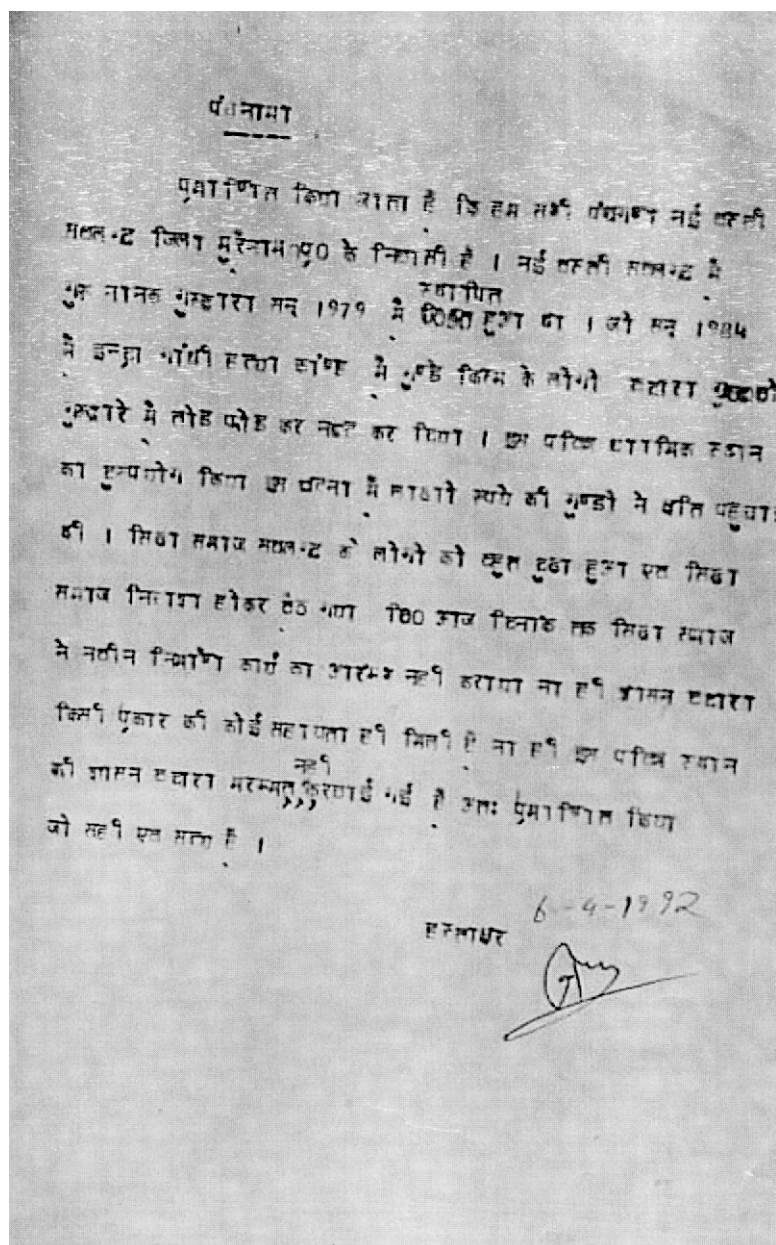 पंचनामा
प्रमाणित किया जाता है कि हम सभी पंचगण नई बस्ती
सबलगढ जिला मुरैना म0प्र0 के निवासी है । नई बस्ती सबलगढ मै
स्थापित
गुरू नानक गुरूद्वारा सन् 1979 मै हुआ था । जो सन् 1984
मै इन्द्रा गांधी हत्या कांण्ड मै गुण्डे किस्म के लोगो व्दारा
गुरूद्वारे मै तोड फोड कर नष्ट कर दिया । इस पवित्र धार्मिक स्थान
का दुरूपयोग किया इस घटना मै लाखो रूपये की गुण्डो ने क्षति पहुचाई
की । सिख समाज सबलगढ के लोगो को बहुत दुख हुआ एव सिख
समाज निराशा होकर बैठ गया आज दिनांक तक सिख समाज
ने नवीन निर्माण कार्य का आरम्भ नही कराया ना ही शासन व्दारा
किसी प्रकार की कोई सहायता ही मिली है ना ही इस पवित्र स्थान
नही
की शासन व्दारा मरम्मत करवाई गई है अतः प्रमाणित किया
जो सही एव सत्य है ।
6-4-1992
हस्ताक्षर